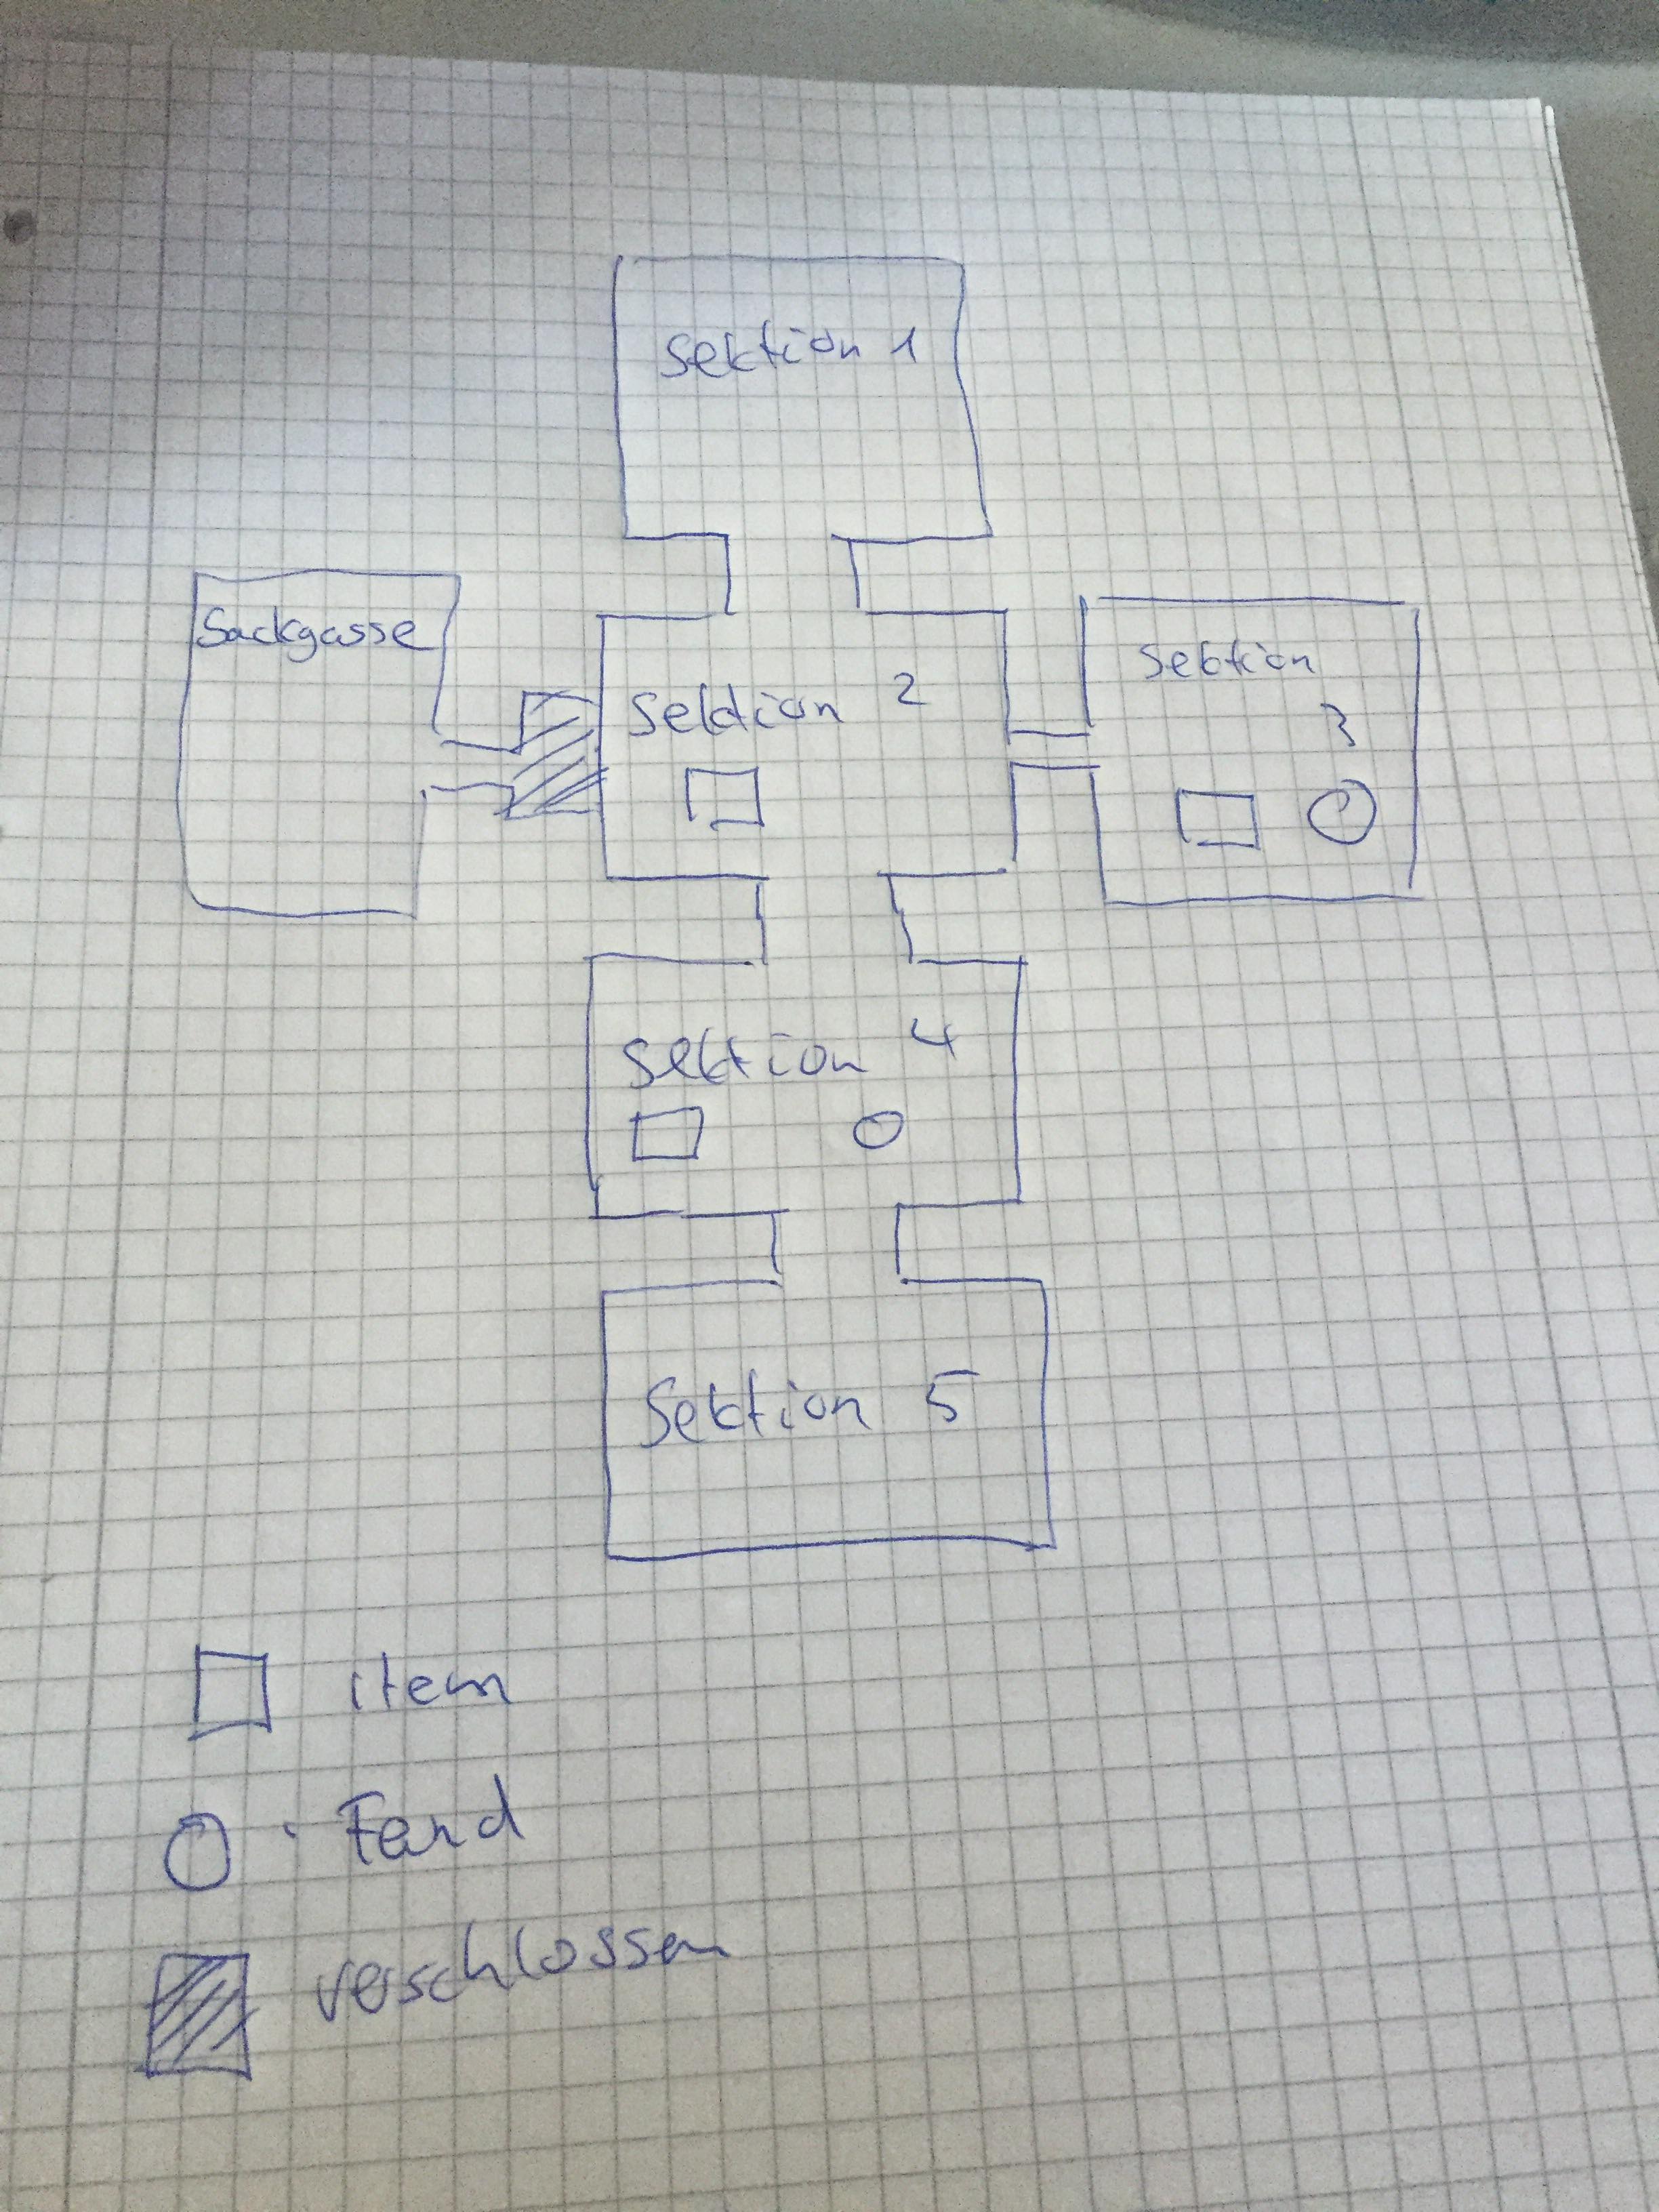 Sektion 1
Sackgasse
Sektion 2
Sektion
3
Sektion 4
Sektion 5
item
Feind
verschlossen